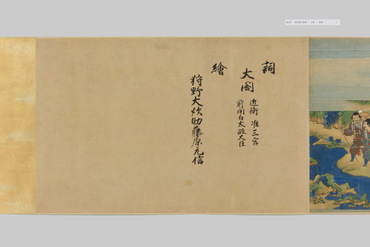 詞
大閤 近衛 准三宮
前関白太政大臣
繪
狩野大炊助藤原元信